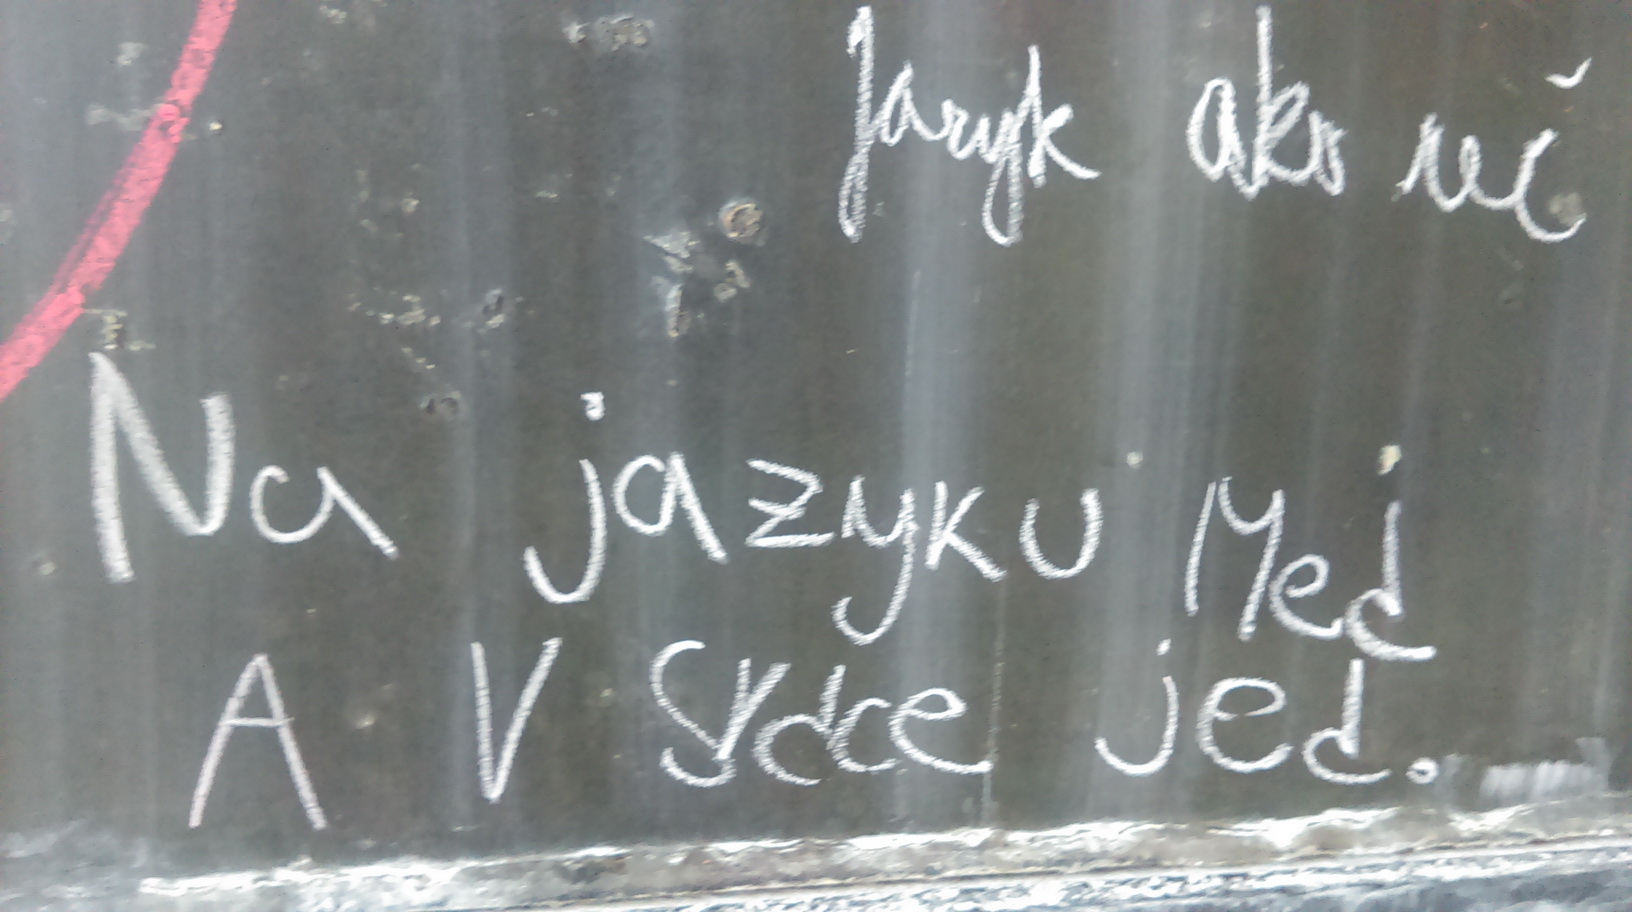 Jazyk ako reč
Na jazyku Med
A V Srdce jed.